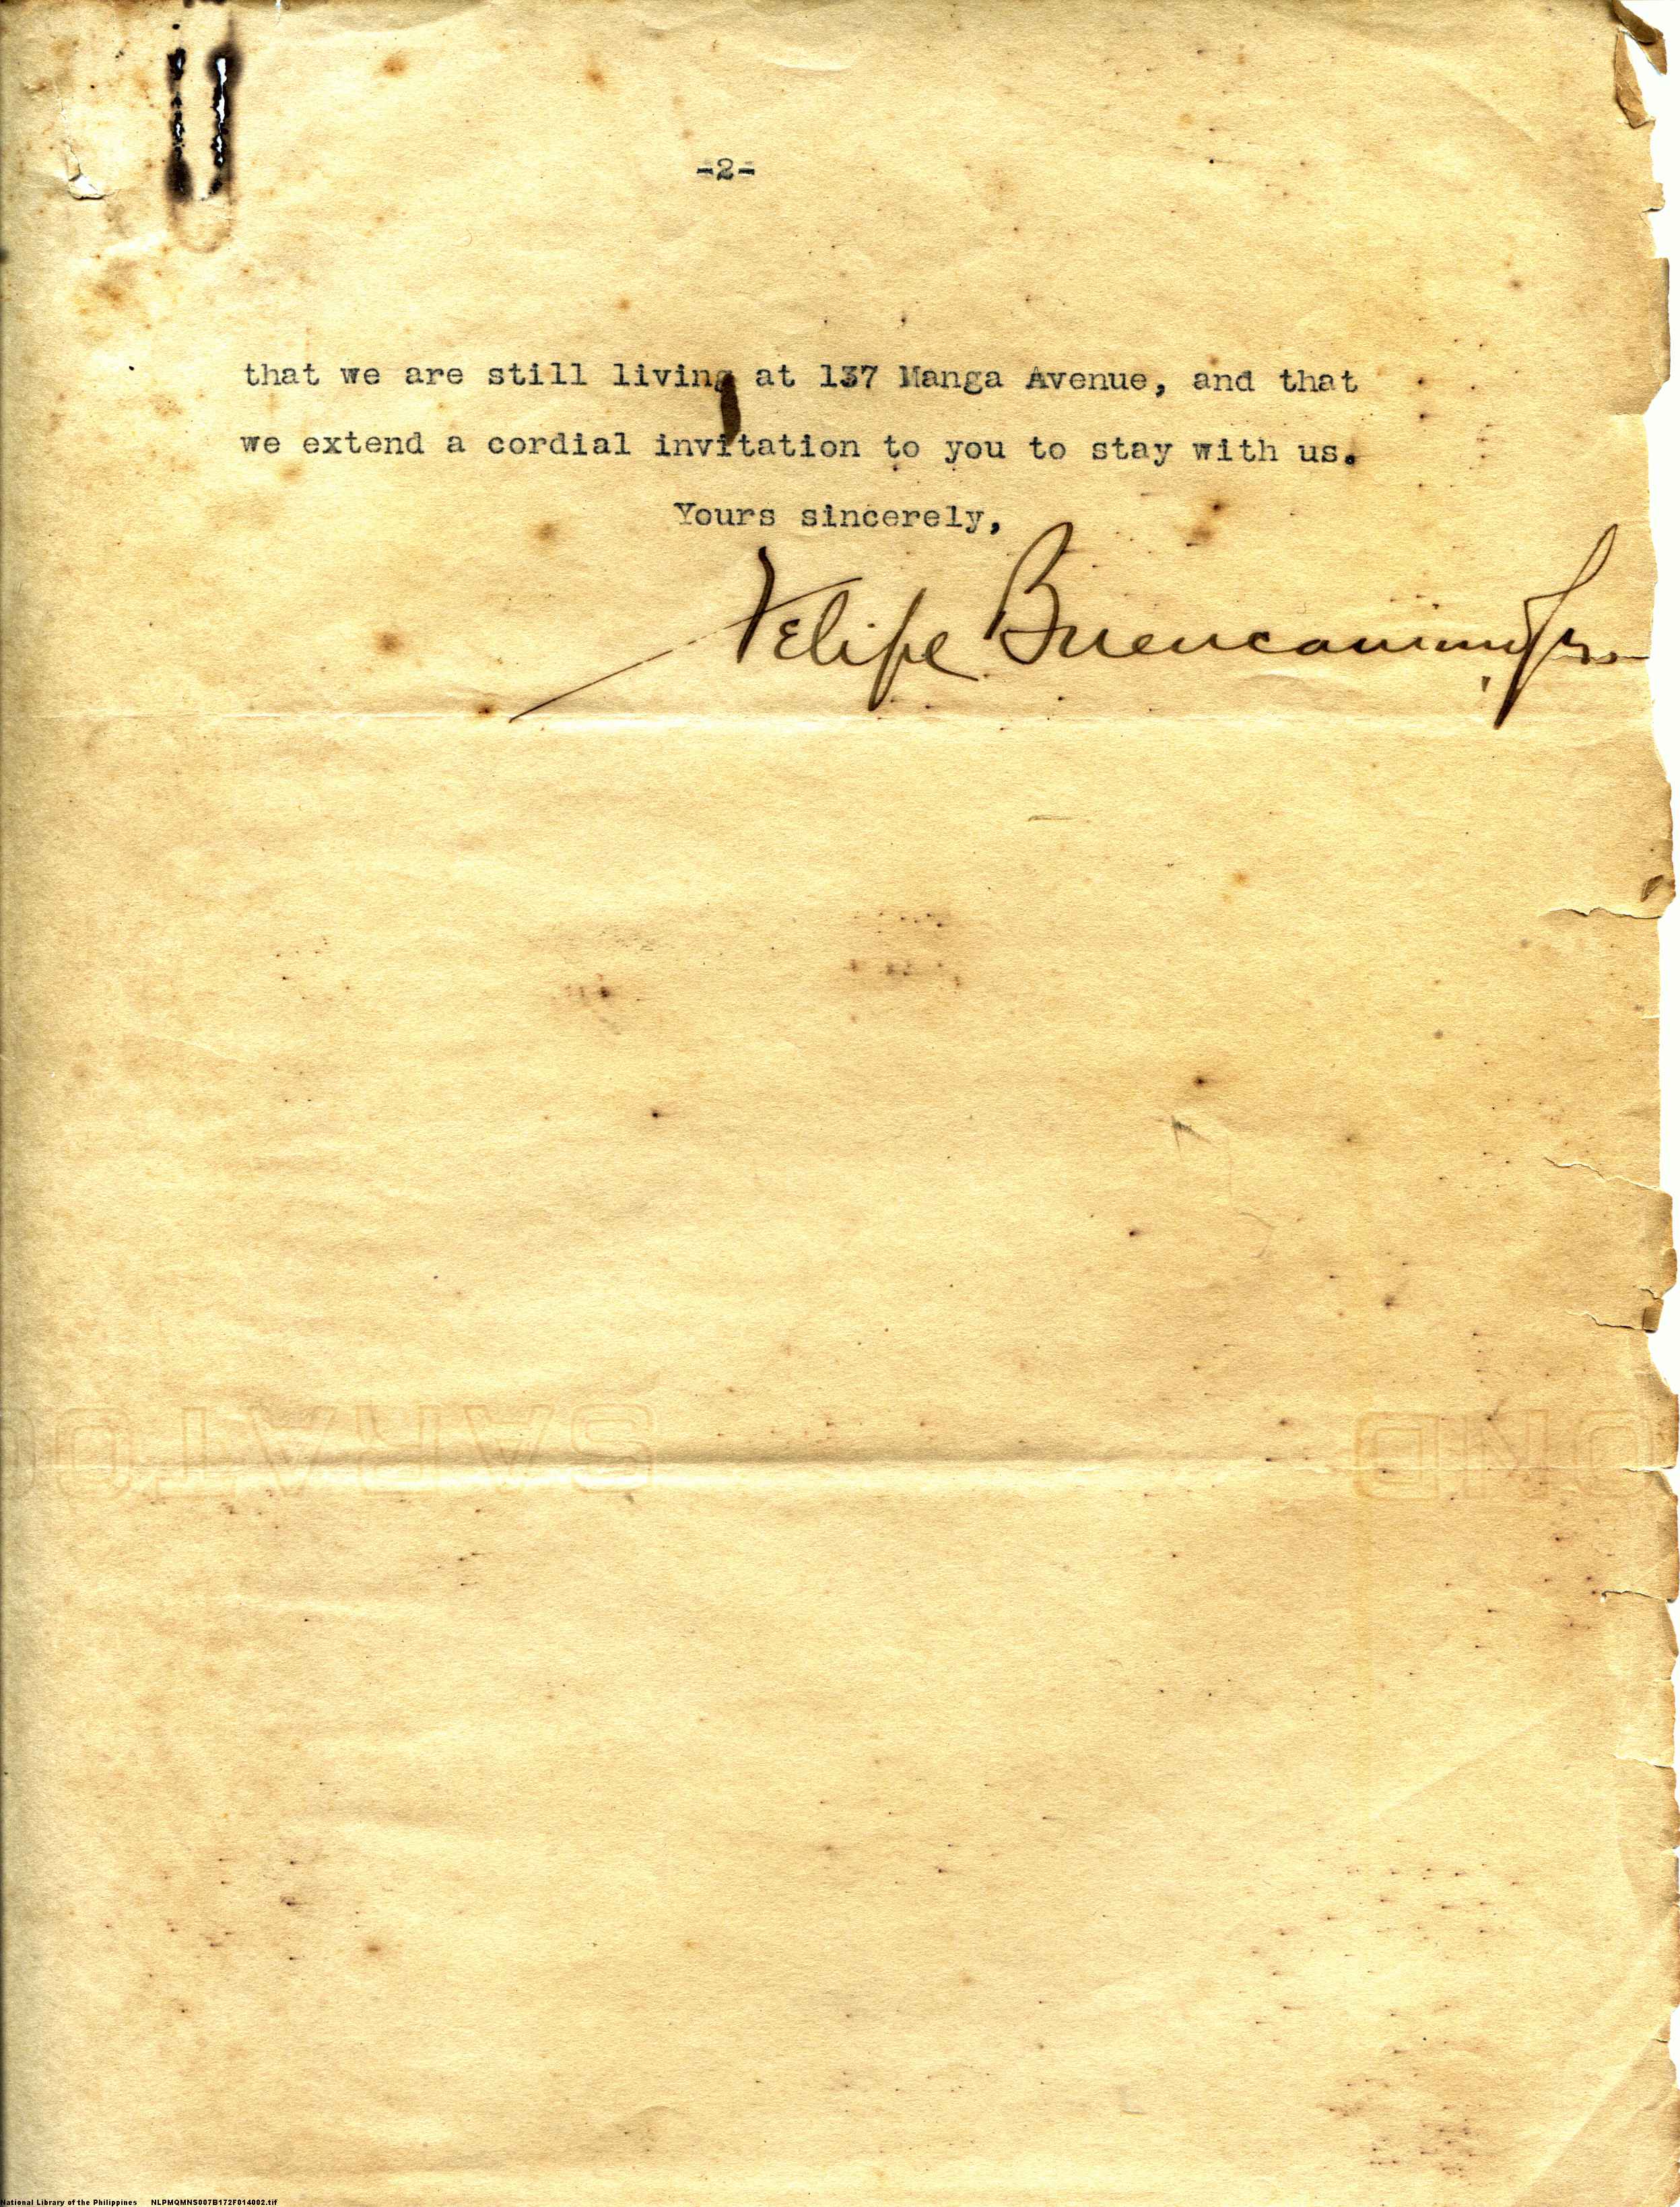 -2-
that we are still living at 137 Manga Avenue, and that
we extend a cordial invitation to you to stay with us.
Yours sincerely,
Felipe Buencamino Jr.
SARATO
OND
National Library of the Philippines NLPMQMNS007B172F014002.tif